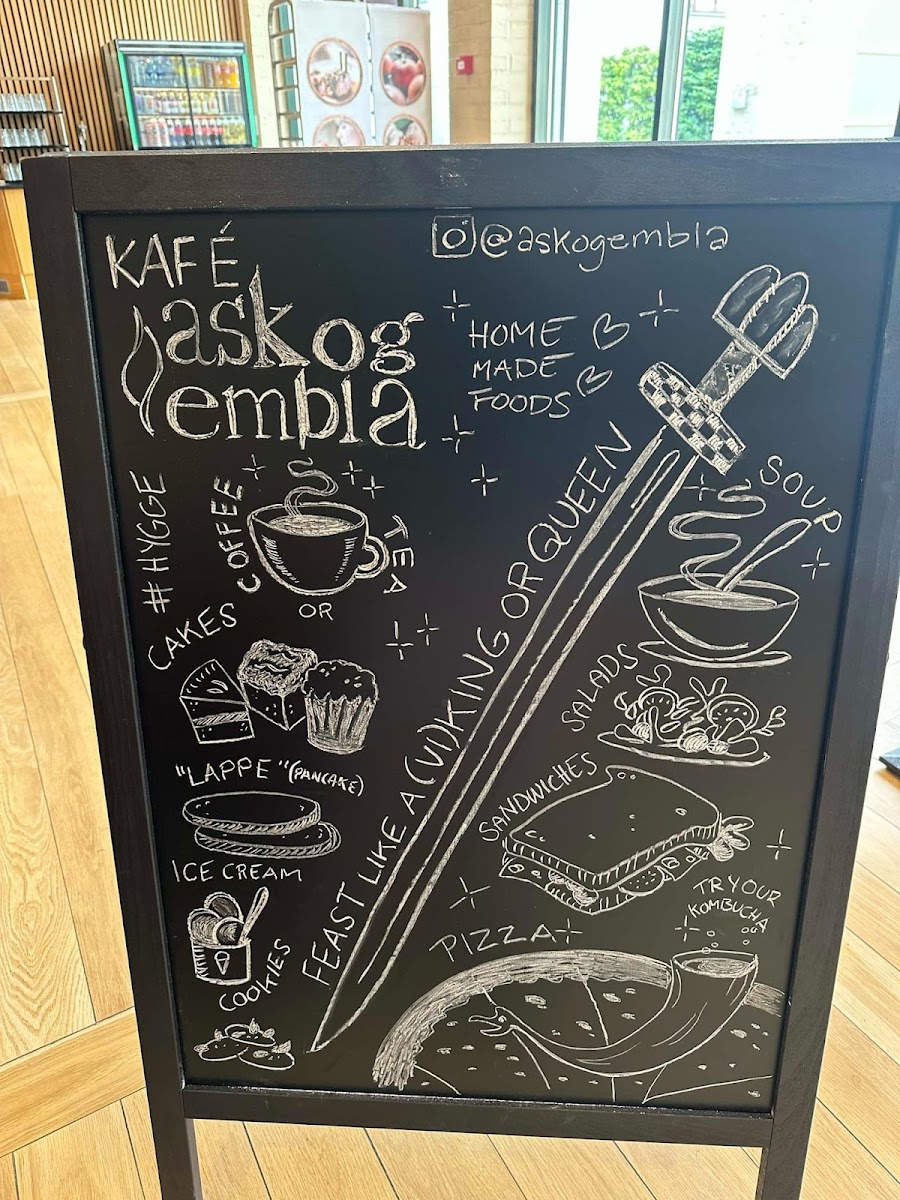 KAFÉ
ask og
embla
@askogembla
HOME
MADE
FOODS
#HYGGE
COFFEE
OR
TEA
CAKES
"LAPPE" (PANCAKE)
ICE CREAM
COOKIES
FEAST LIKE A (VI)KING OR QUEEN
SOUP
SALADS
SANDWICHES
TRY OUR
KOMBUCHA
PIZZA